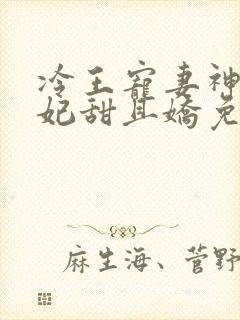 冷王寵妻神
妃甜且嬌免
麻生海、菅野